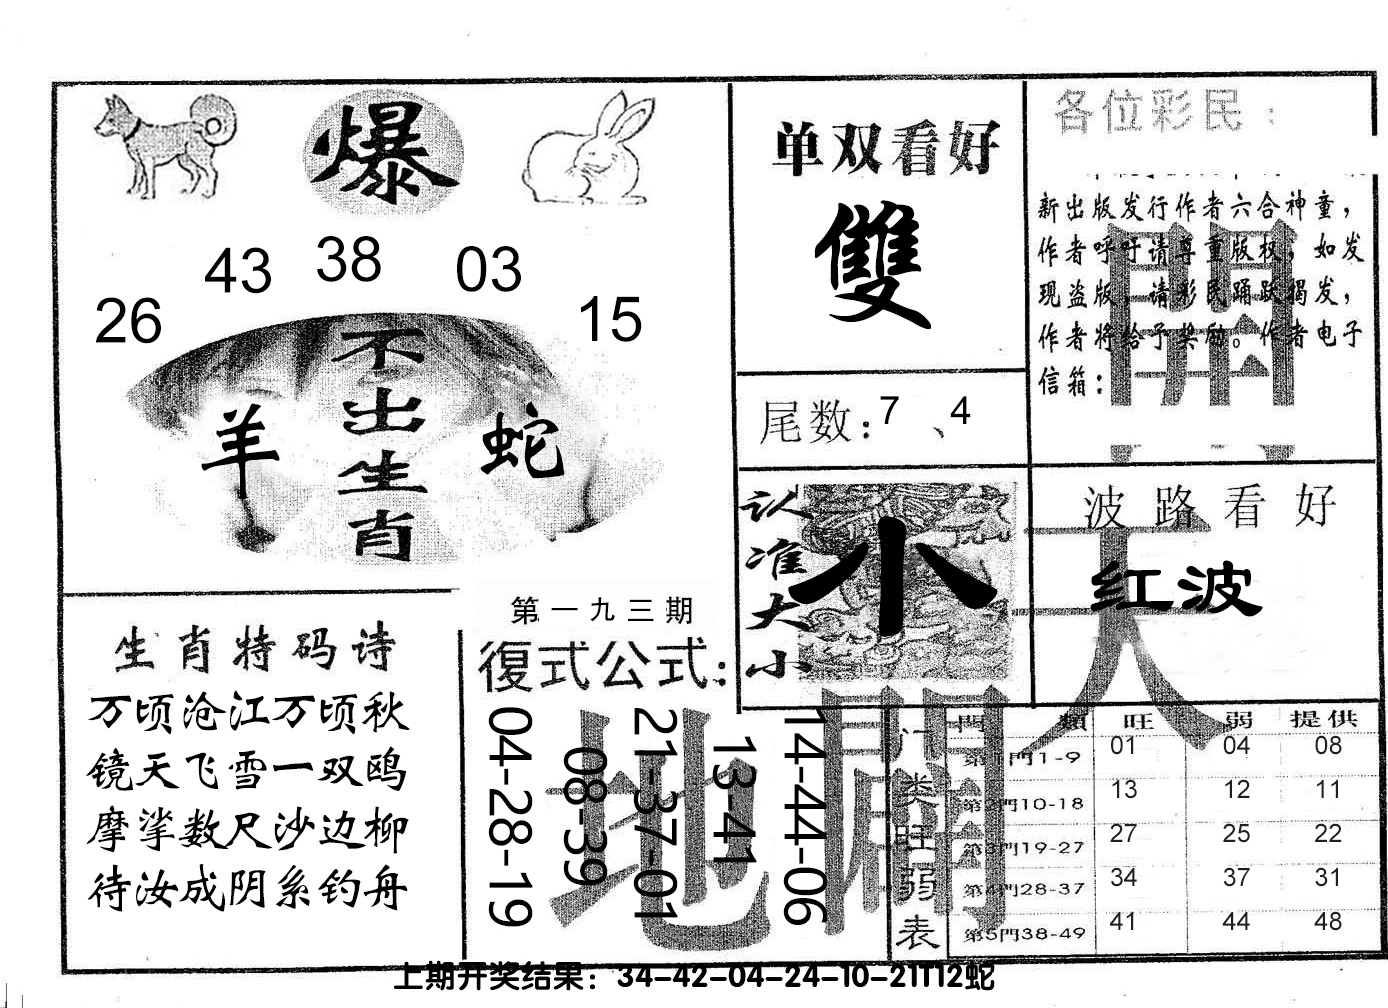 爆
26
43
38
03
15
不出生肖
羊
蛇
单双看好
雙
尾数:7、4
认准大小
小
各位彩民：
新出版发行作者六合神童，
作者呼吁请尊重版权，如发
现盗版，请彩民踊跃揭发，
作者将给予奖励。作者电子
信箱：
開
波路看好
红波
天
生肖特码诗
万顷沧江万顷秋
镜天飞雪一双鸥
摩挲数尺沙边柳
待汝成阴系钓舟
第一九三期
復式公式:
04-28-19
08-39
21-37-01
13-41
14-44-06
地
開
门类旺弱表
門類 旺 弱 提供
第1門1-9 01 04 08
第2門10-18 13 12 11
第3門19-27 27 25 22
第4門28-37 34 37 31
第5門38-49 41 44 48
上期开奖结果：34-42-04-24-10-21T12蛇